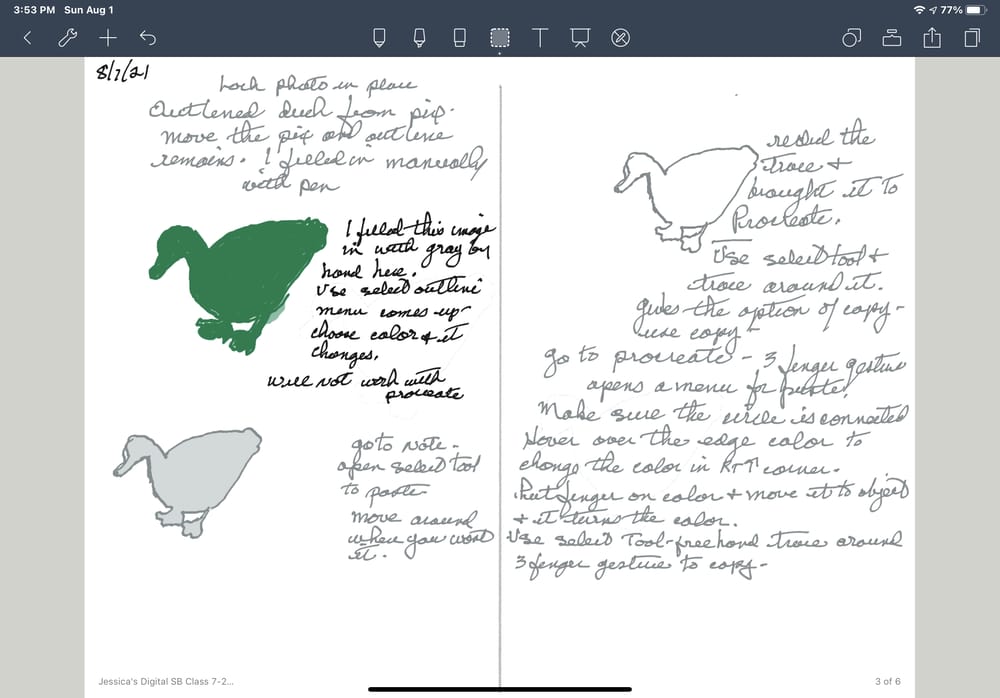 3:53 PM Sun Aug 1
77%
8/1/21
Lock photo in place
Outlened duck from pic.
move the pic and outline
remains. I filled in manually
with pen
I filled this image
in with gray by
hand here.
Use select outline
menu comes up
choose color & it
changes.
will not work with
procreate
go to note -
open select tool
to paste
move around
when you want
it.
resed the
Trace +
brought it To
Procreate.
Use select tool +
trace around it.
gives the option of copy -
use copy -
go to procreate - 3 finger gesture
opens a menu for paste!
Make sure the circle is connected
Hover over the edge color to
change the color in RTT corner.
Put finger on color + move it to object
+ it turns the color.
Use select Tool - freehand trace around
3 finger gesture to copy -
Jessica's Digital SB Class 7-2...
3 of 6